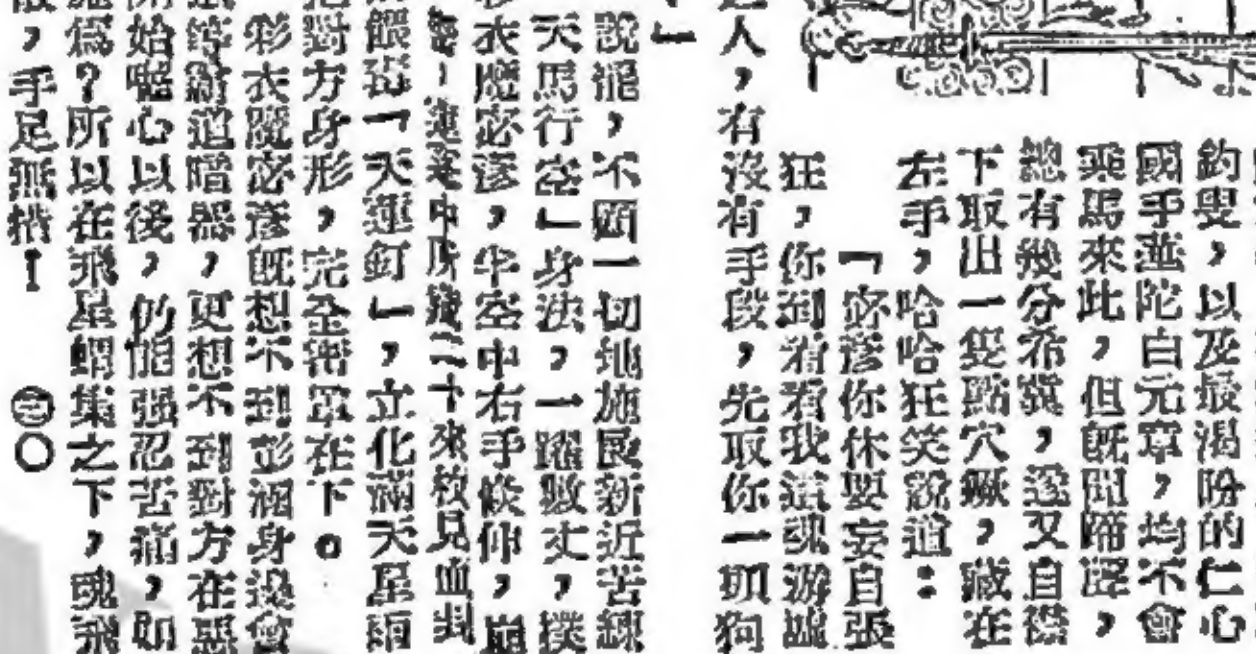 釣叟，以及最渴盼的仁心
國手華陀白元章，均不會
乘馬來此，但既聞蹄聲，
總有幾分希冀，遂又自襟
下取出一隻點穴橛，藏在
左手，哈哈狂笑說道：
「宓彥你休要妄自張
狂，你到看看我這魂游墟
人，有沒有手段，先取你一顆狗
」
說罷，不顧一切地施展新近苦練
天馬行空」身法，一躍數丈，撲
衣魔宓彥，半空中右手倏伸，
二十來枚見血封
餵毒「天蓮釘」，立化滿天星雨
對方身形，完全密罩在下。
彩衣魔宓彥既想不到彭涵身邊會
道暗器，更想不到對方在惡
始嘔心以後，仍能强忍苦痛，
爲？所以在飛星蝟集之下，魂飛
，手足無措！　㊂〇